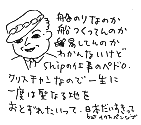 船のりなのか
船つくってんのか
貿易してんのか
わかんないけど
shipの仕事のペドロ.
クリスチャンなので一生に
一度は聖なる地を
おとずれたいって.
日本
by